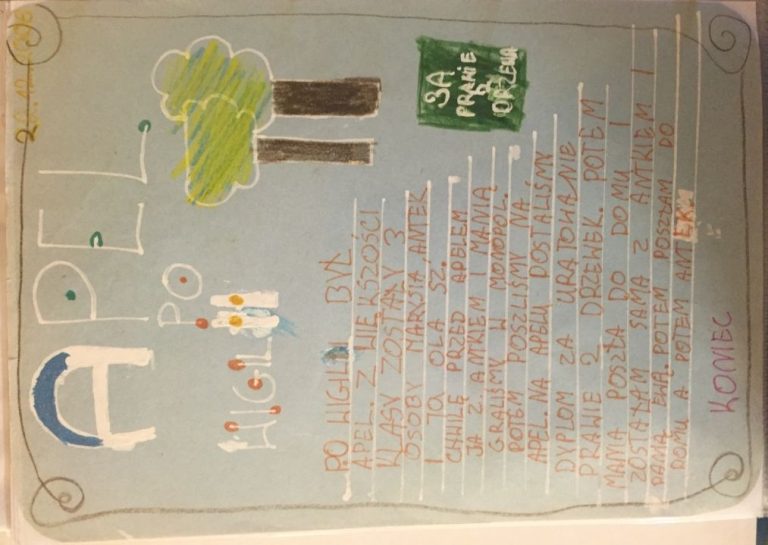 APEL
PO
WIGILII
ZA
PRAWIE
2
DRZEWA
PO WIGILII BYŁ
APEL. Z WIĘKSZOŚCI
KLASY ZOSTAŁY 3
OSOBY ANTEK
I JA OLA SZ.
CHWILĘ PRZED APELEM
JA Z ANTKIEM I MANIĄ
GRALIŚMY W MONOPOL.
POTEM POSZLIŚMY NA
APEL. NA APELU DOSTALIŚMY
DYPLOM ZA URATOWANIE
PRAWIE 2 DRZEWEK. POTEM
MAMA POSZŁA DO DOMU I
ZOSTAŁAM SAMA Z ANTKIEM I
PANIĄ EWĄ. POTEM POSZŁAM DO
DOMU A POTEM ANTEK.
KONIEC